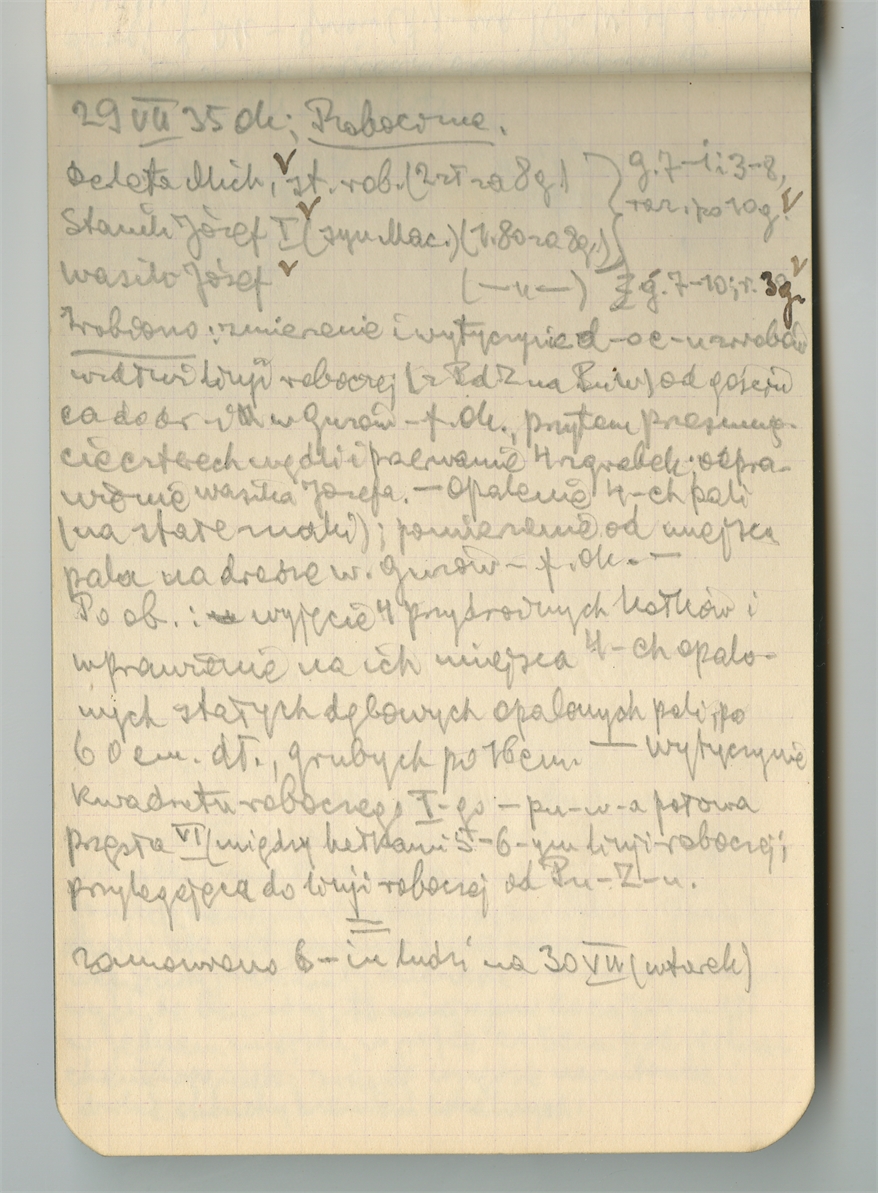 29 VII 35 dc; Robocizna.
Seleta Mich, st. rob. (2 zł za 8g.) } g. 7-1 i 3-8,
raz. po 10 g.
Stanik Józef I (syn Mac.) (1.80 za 8g.)
Wasilo Józef (—u—) g. 7-10; r. 3g.
Zrobiono: zmierzenie i wytyczenie
linji roboczej (z Pd Z na Pn W) od gościń
ca do w Gurów - f. dc., przytem przesunię-
cie czterech i przerwanie 4 ; odpra-
wienie Wasila Józefa. — Opalenie 4-ch pali
(na stałe znaki); pomierzenie od miejsca
pala na drodze w. Gurów - f. dc. —
Po ob.: wyjęcie 4 przydrożnych kołków i
wprawienie na ich miejsca 4-ch opalo-
nych stałych dębowych opalonych pali, po
60 cm. dł., grubych po 16 cm. — Wytyczenie
kwadratu roboczego I-go - pn-w-a połowa
przęsła VI (między kołkami 5-6-ym linji roboczej;
przylegająca do linji roboczej od Pn-Z-u.
zamówiono 6-iu ludzi na 30 VII (wtorek)